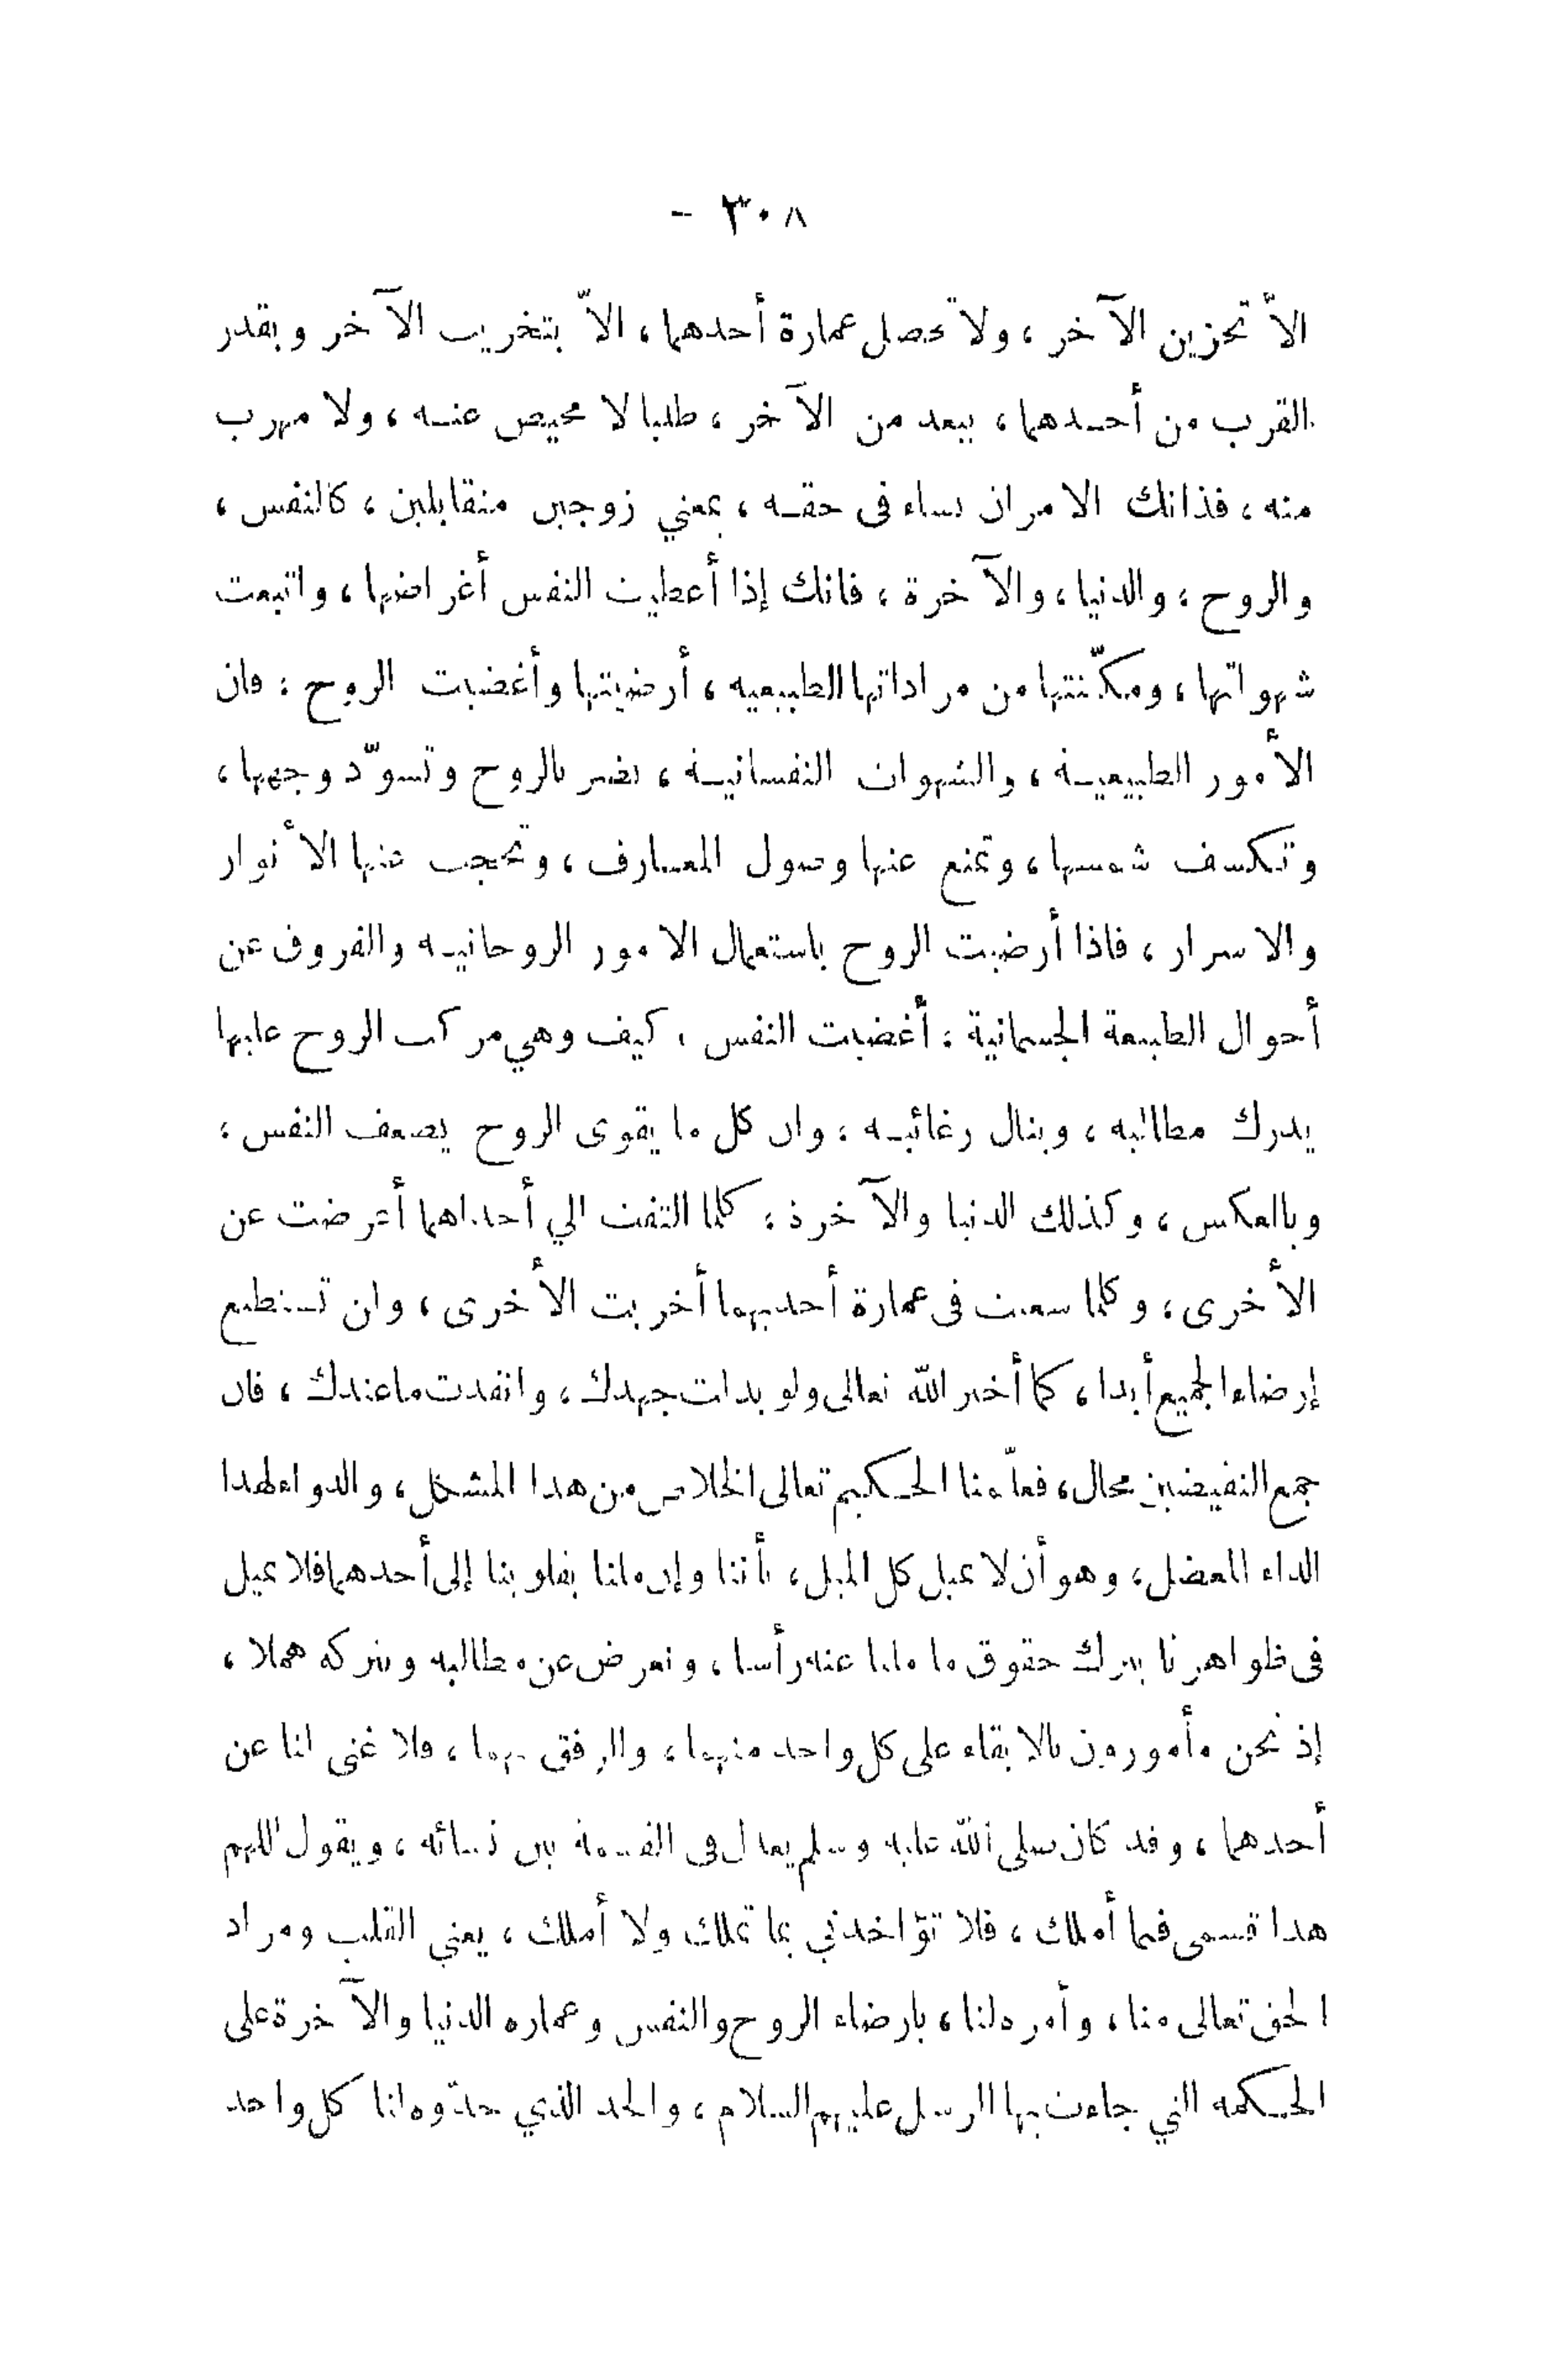 ٣٠٨ -
الاّ تحزين الآخر ، ولا تحصل عمارة أحدهما ، الاّ بتخريب الآخر وبقدر
القرب من أحدهما ، يبعد من الآخر ، طلبا لا محيص عنه ، ولا مهرب
منه ، فذانك الامران نساء فى حقه ، بمعني زوجين متقابلين ، كالنفس ،
والروح ، والدنيا ، والآخرة ، فانك إذا أعطيت النفس أغراضها ، واتبعت
شهواتها ، ومكّنتها من مراداتها الطبيعيه ، أرضيتها وأغضبت الروح ؛ فان
الأمور الطبيعية ، والشهوات النفسانية ، تضر بالروح وتسوّد وجهها ،
وتكسف شمسها ، وتمنع عنها وصول المعارف ، وتحجب عنها الأنوار
والاسرار ، فاذا أرضيت الروح باستعمال الامور الروحانيه والغروف عن
أحوال الطبيعة الجسمانية ؛ أغضبت النفس ، كيف وهي مركب الروح عليها
يدرك مطالبه ، وينال رغائبه ؛ وان كل ما يقوى الروح يضعف النفس ؛
وبالعكس ، وكذلك الدنيا والآخرة ؛ كلما التفت الي أحداهما أعرضت عن
الأخرى ، وكلما سعيت فى عمارة أحديهما أخربت الأخرى ، ولن تستطيع
إرضاء الجميع أبدا ، كما أخبر الله تعالى ولو بذلت جهدك ، وانفدت ما عندك ، فان
جمع النقيضين محال ، فعلّمنا الحكيم تعالى الخلاص من هذا المشكل ، والدواء لهذا
الداء المعضل ، وهو أن لا نميل كل الميل ، بأننا وإن ملنا بقلوبنا إلى أحدهما فلا نميل
فى ظواهرنا بترك حقوق ما ملنا عنه رأسا ، ونعرض عن مطالبه ونتركه هملا ،
إذ نحن مأمورون بالابقاء على كل واحد منهما ، والرفق بهما ، فلا غنى لنا عن
أحدهما ، وقد كان صلى الله عليه وسلم يعدل فى القسمة بين نسائه ، ويقول اللهم
هذا قسمى فيما أملك ، فلا تؤاخذني بما تملك ولا أملك ، يعني القلب ومراد
الحق تعالى منا ، وأمره لنا ، بارضاء الروح والنفس وعماره الدنيا والآخرة على
الحكمه التي جاءت بها الرسل عليهم السلام ، والحد الذي حدّوه لنا كل واحد